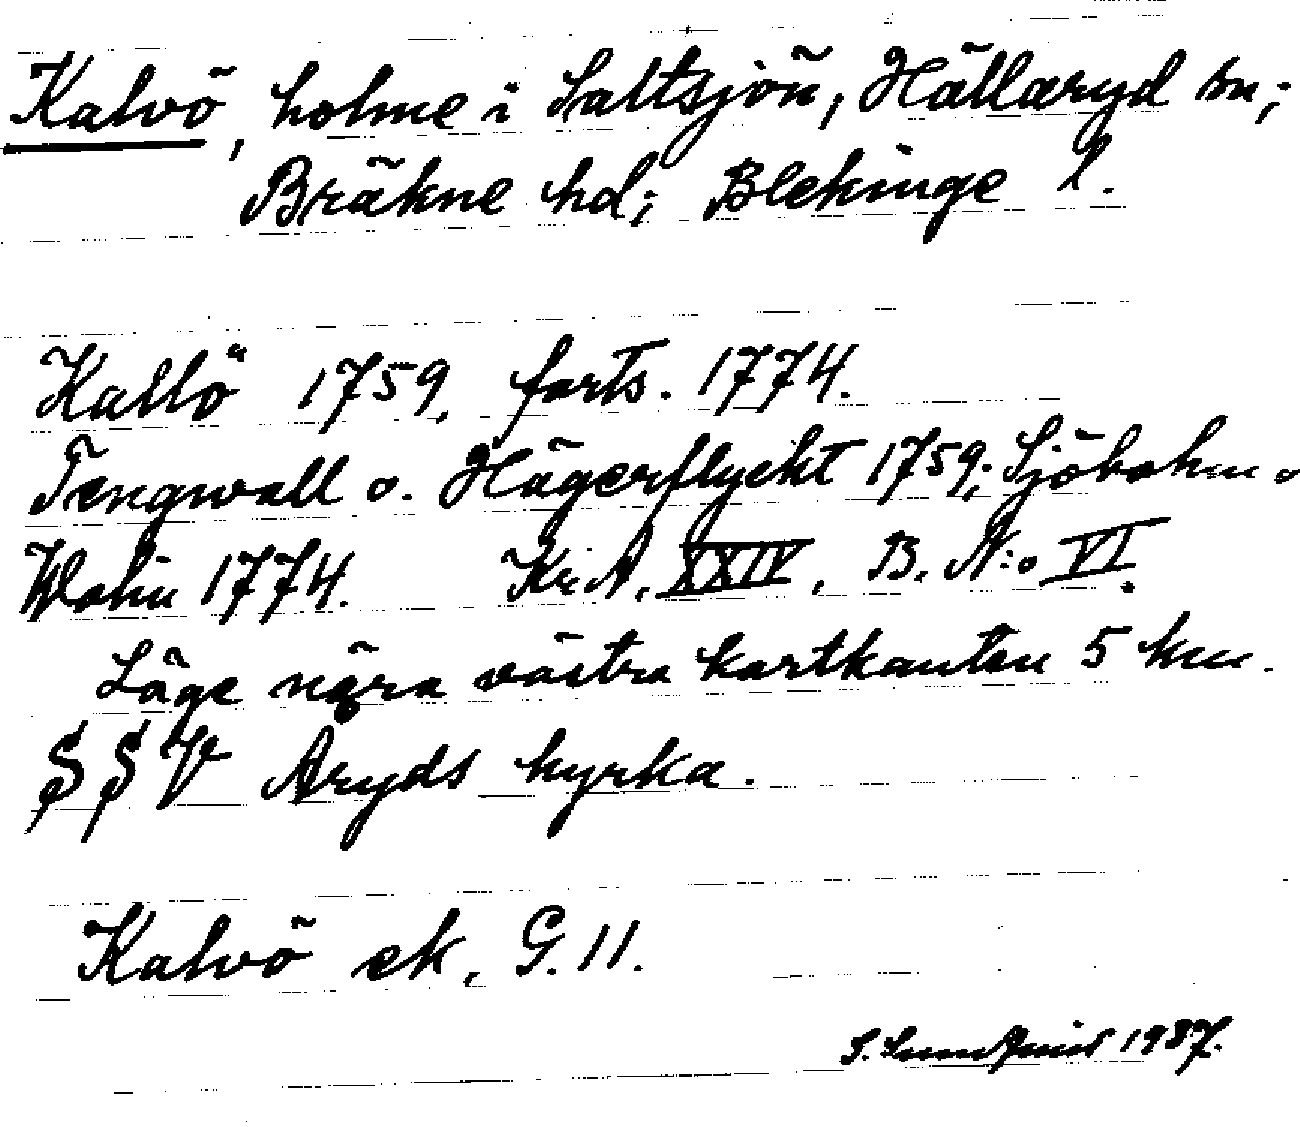 Kalvö, holme i Saltsjön, Hällaryd sn;
Bräkne hd; Blekinge l.
Kallö 1759, forts. 1774.
Tengwall o. Hägerflycht 1759; Sjöbohm o
Wohn 1774. Kr.A. XXIV, B. N:o VI.
Läge nära västra kartkanten 5 km.
SSV Aryds kyrka.
Kalvö ek. G.11.
S. 1937.